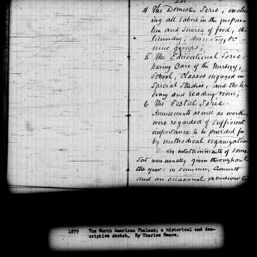 4 The Domestic Serie, inclu-
ing all labor in the prepara-
tion and source of food, the
laundry, dormitory, &c -
nine groups;
5 The Educational Serie,
having Care of the Nursery,
School, Classes engaged in
Special Studies, and the li-
brary and reading-room;
6 The Festal Serie
Amusements as well as work
were regarded of sufficient
importance to be provided for
by methodical organization
An entertainment of some
sort was usually given throughout
the year: in summer, concerts
and an occasional
1879 The North American Phalanx; a historical and des-
criptive sketch. By Charles Sears.